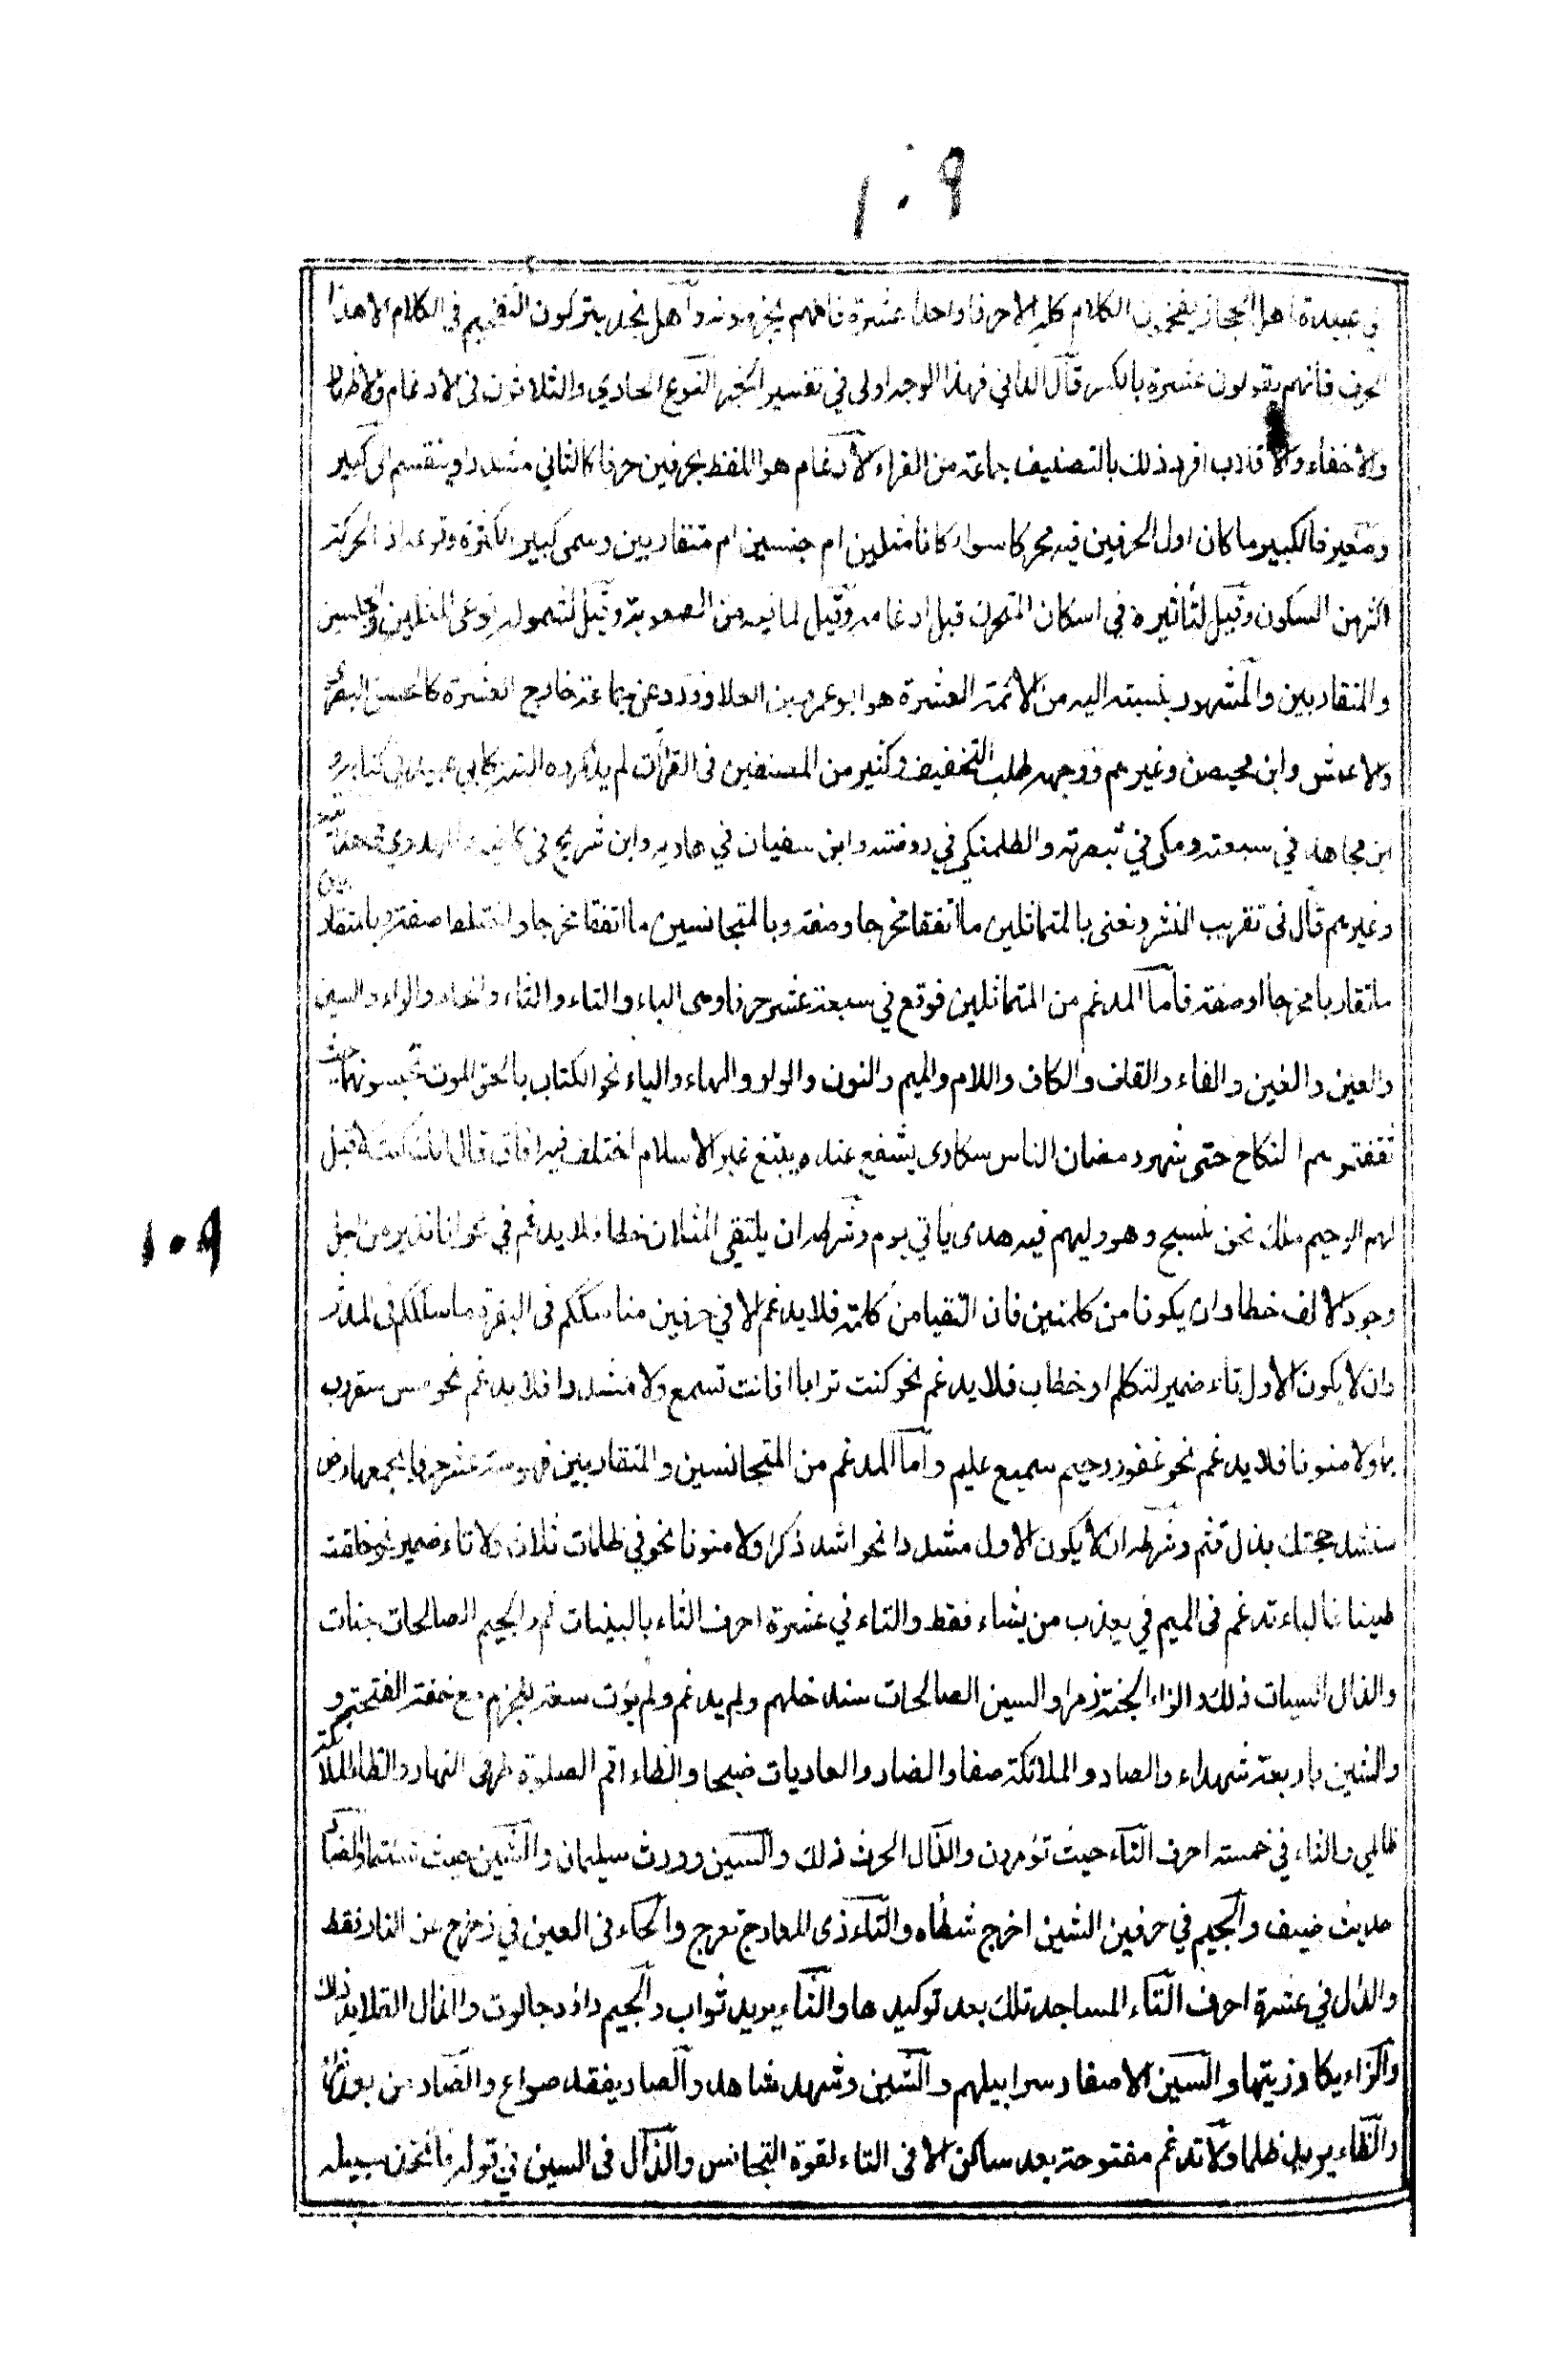 ١٠٩
بي عبيدة اهل الحجاز يفخمون الكلام كله الا حرفا واحدا عشرة فانهم يجزمونه واهل نجد يتركون التفخيم في الكلام الا هذا
الحرف فانهم يقولون عشرة بالكسر قال الداني فهذا الوجه اولى في تفسير الخبر النوع الحادي والثلاثون في الادغام والاظهار
والاخفاء والاقلاب افرد ذلك بالتصنيف جماعة من القراء الادغام هو اللفظ بحرفين حرفا كالثاني مشددا وينقسم الى كبير
وصغير فالكبير ما كان اول الحرفين فيه محركا سواء كانا مثلين ام جنسين ام متقاربين وسمى كبيرا لكثرة وقوعه اذ الحركة
اكثر من السكون وقيل لتأثيره في اسكان المتحرك قبل ادغامه وقيل لما فيه من الصعوبة وقيل لشموله نوعى المثلين والجنسين
والمتقاربين والمشهور بنسبته اليه من الائمة العشرة هو ابو عمرو بن العلا وورد عن جماعة خارج العشرة كالحسن البصرى
والاعمش وابن محيصن وغيرهم ووجهه طلب التخفيف وكثير من المصنفين في القرأت لم يذكروه البتة كابي عبيد في كتابه و
ابن مجاهد في سبعته ومكى في تبصرته والطلمنكي في روضته وابن سفيان في هاديه وابن شريح في كافيه والمهدوي في هدايته
وغيرهم قال في تقريب النشر ونعنى بالمتماثلين ما اتفقا مخرجا وصفة وبالمتجانسين ما اتفقا مخرجا واختلفا صفة وبالمتقاربين
ما تقاربا مخرجا او صفة فاما المدغم من المتماثلين فوقع في سبعة عشر حرفا وهى الباء والتاء والثاء والحاء والراء والسين
والعين والغين والفاء والقاف والكاف واللام والميم والنون والواو والهاء والياء نحو الكتاب بالحق الموت تحبسونهما حيث
ثقفتموهم النكاح حتى شهر رمضان الناس سكارى يشفع عنده يبتغ غير الاسلام اختلف فيه افاق قال انك كنت لا قبل
لهم الرحيم ملك نحن نسبح وهو وليهم فيه هدى يأتي يوم وشرطه ان يلتقى المثلان خطا فلا يدغم في نحو انا نذير من اجل
وجود الالف خطا وان يكونا من كلمتين فان التقيا من كلمة فلا يدغم الا في حرفين مناسككم في البقرة وما سلككم في المدثر
وان لا يكون الاول تاء ضمير لتكلم او خطاب فلا يدغم نحو كنت ترابا افانت تسمع ولا مشددا فلا يدغم نحو مس سقر رب
بما ولا منونا فلا يدغم نحو غفور رحيم سميع عليم واما المدغم من المتجانسين والمتقاربين فهو ستة عشر حرفا يجمعها رض
سنشد حجتك بذل قثم وشرطه ان لا يكون الاول مشددا نحو اشد ذكرا ولا منونا نحو في ظلمات ثلاث ولا تاء ضمير نحو خلقت
طينا فالباء تدغم في الميم في يعذب من يشاء فقط والتاء في عشرة احرف الثاء بالبينات ثم والجيم الصالحات جنات
والذال السيات ذلك والزاء الجنة زمرا والسين الصالحات سندخلهم ولم يدغم ولم يؤت سعة للجزم مع خفة الفتحة و
والشين باربعة شهداء والصاد والملائكة صفا والضاد والعاديات ضبحا والطاء اقم الصلوة طرفى النهار والظاء الملائكة
ظالمي والثاء في خمسة احرف التاء حيث تؤمرون والذال الحرث ذلك والسين وورث سليمان والشين حيث شئتما والضاد
حديث ضيف والجيم في حرفين الشين اخرج شطأه والتاء ذى المعارج تعرج والحاء في العين في زحزح عن النار فقط
والدال في عشرة احرف التاء المساجد تلك بعد توكيدها والثاء يريد ثواب والجيم داؤد جالوت والذال القلايد ذلك
والزاء يكاد زيتها والسين الاصفاد سرابيلهم والشين وشهد شاهد والصاد يفقد صواع والضاد من بعد ضراء
والظاء يريد ظلما ولا تدغم مفتوحة بعد ساكن الا في التاء لقوة التجانس والذال في السين في قوله فاتخذ سبيله
١٠٩